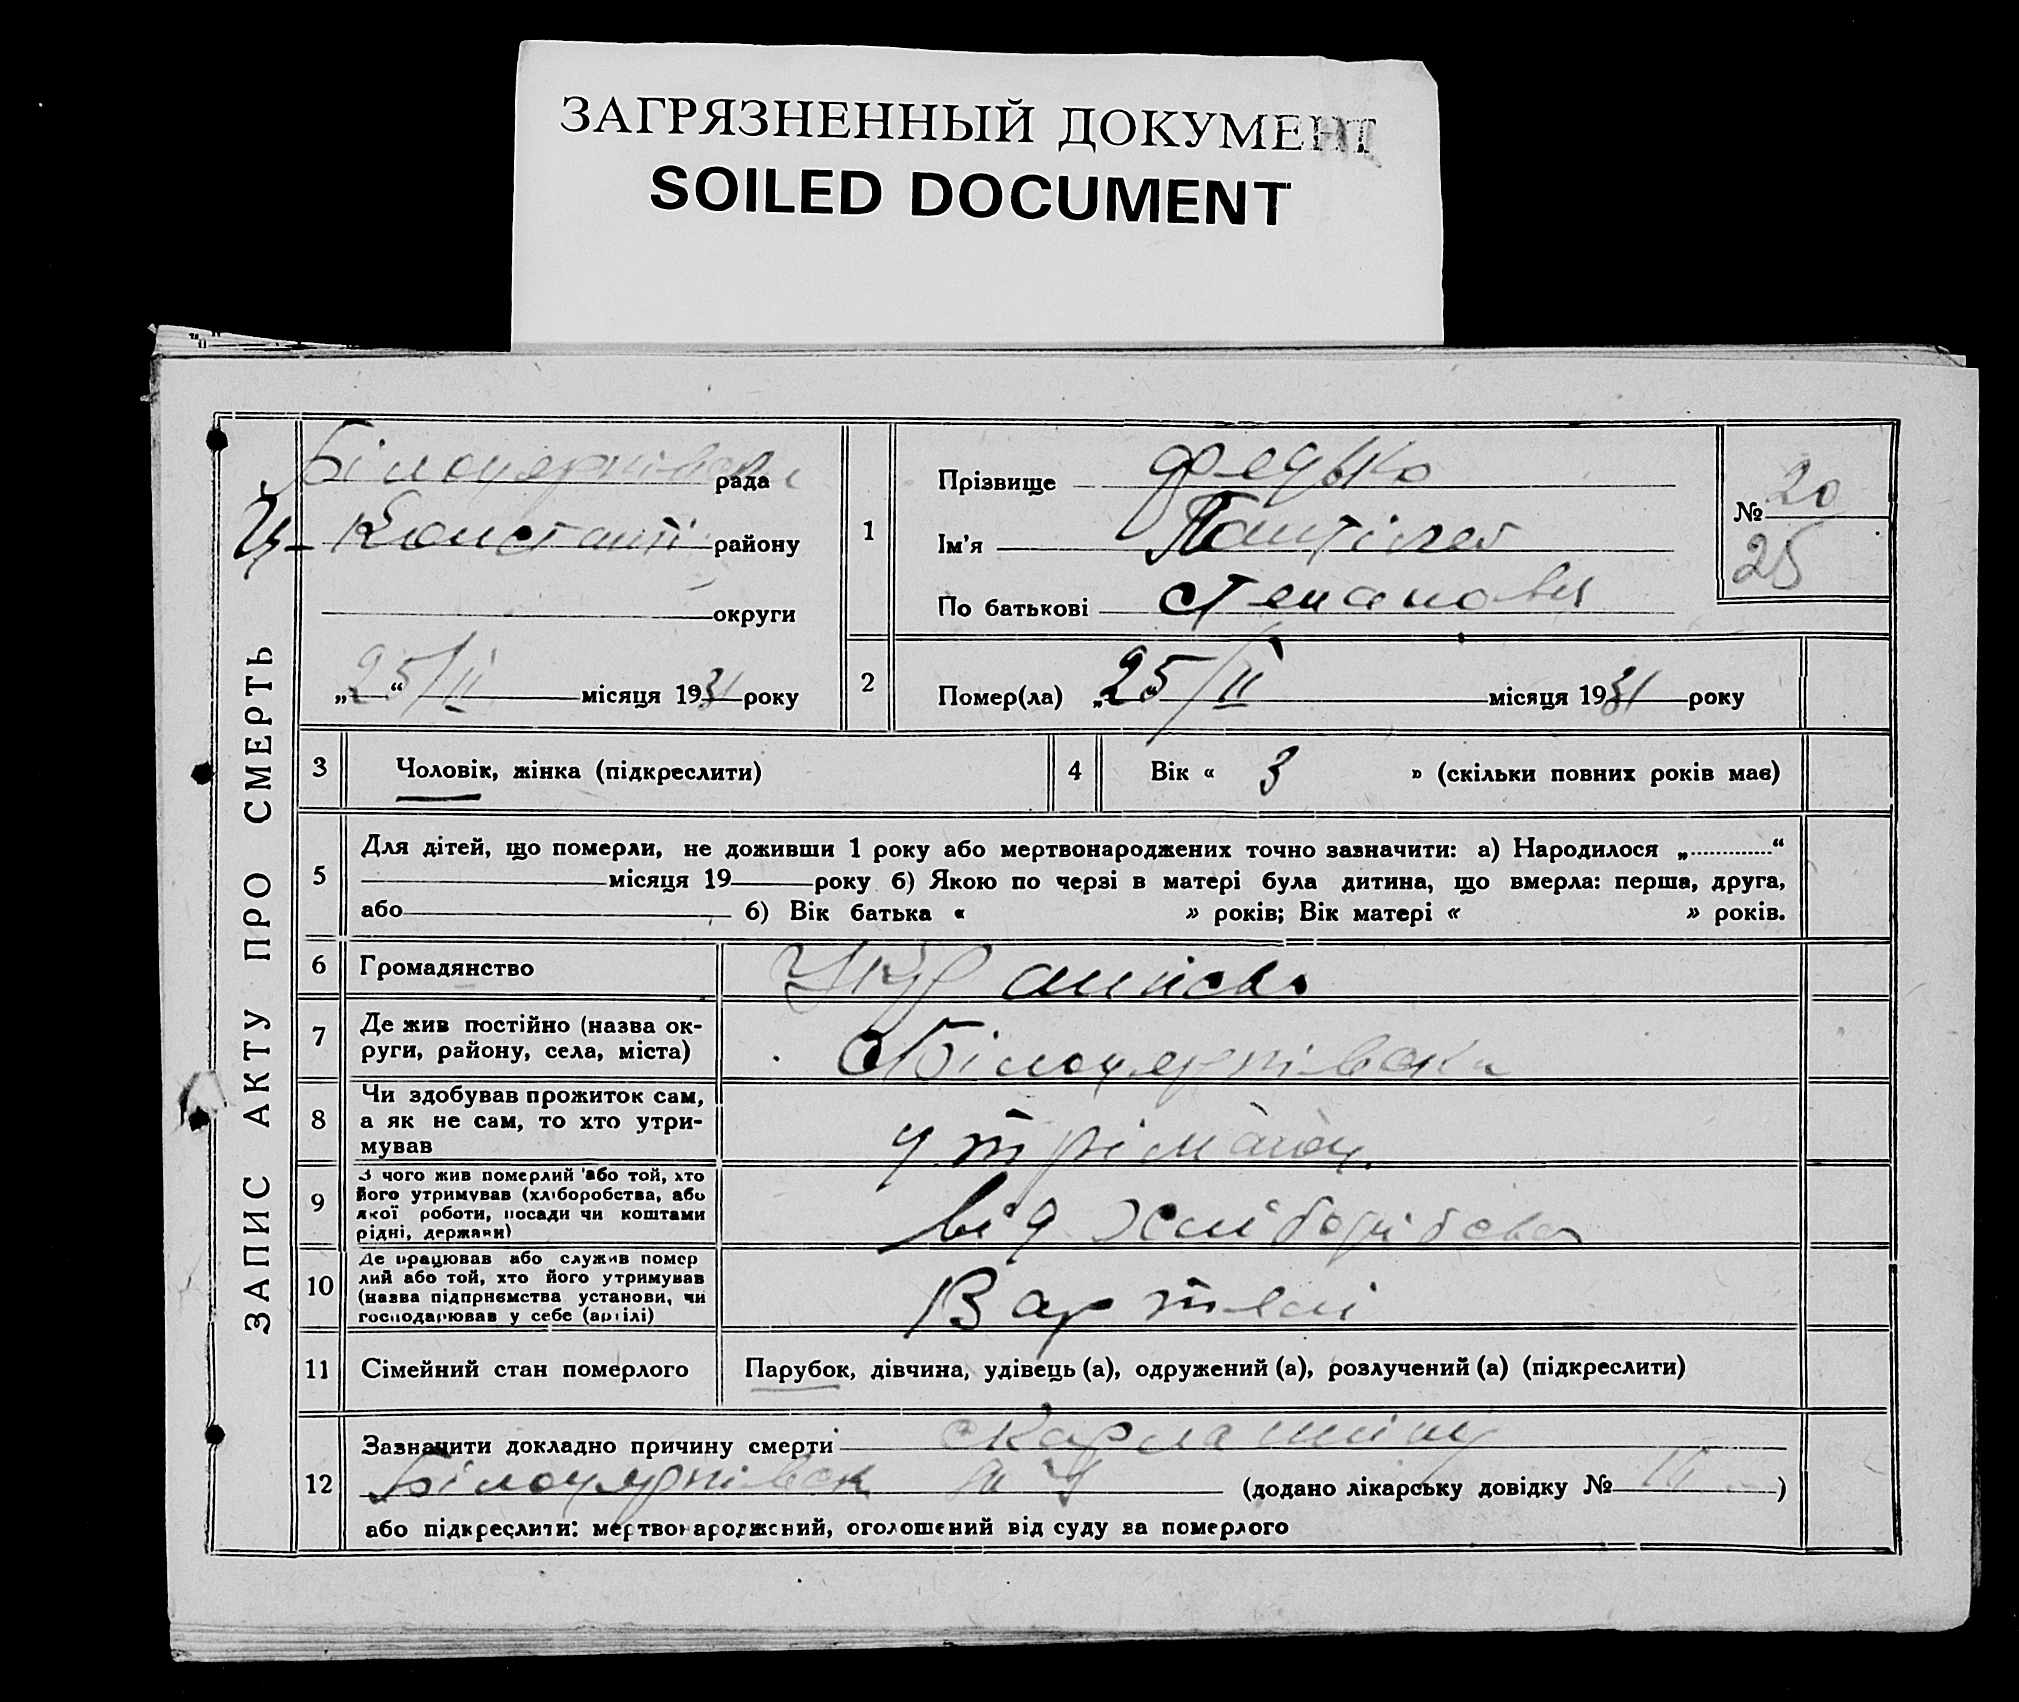 ЗАГРЯЗНЕННЫЙ ДОКУМЕНТ
SOILED DOCUMENT
ЗАПИС АКТУ ПРО СМЕРТЬ
Білоцерківськ рада
Ч-Констант району
округи
„25/II“ місяця 1931 року
1
Прізвище Федько
Ім'я
По батькові Степанович
№ 20
25
2
Помер(ла) „25/II місяця 1931 року
3
Чоловік, жінка (підкреслити)
4
Вік « 3 » (скільки повних років має)
5
Для дітей, що померли, не доживши 1 року або мертвонароджених точно зазначити: а) Народилося „............“
місяця 19 року б) Якою по черзі в матері була дитина, що вмерла: перша, друга,
або б) Вік батька « » років; Вік матері « » років.
6
Громадянство
7
Де жив постійно (назва ок-
руги, району, села, міста)
8
Чи здобував прожиток сам,
а як не сам, то хто утри-
мував
9
З чого жив померлий або той, хто
його утримував (хліборобства, або
якої роботи, посади чи коштами
рідні, держави)
від
10
Де працював або служив помер
лий або той, хто його утримував
(назва підприємства установи, чи
господарював у себе (артілі)
В артілі
11
Сімейний стан померлого
Парубок, дівчина, удівець (а), одружений (а), розлучений (а) (підкреслити)
12
Зазначити докладно причину смерти скарлатину
(додано лікарську довідку № )
або підкреслити: мертвонароджений, оголошений від суду за померлого